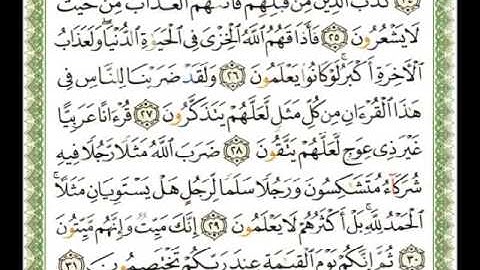 كَذَّبَ ٱلَّذِينَ مِن قَبۡلِهِمۡ فَأَتَىٰهُمُ ٱلۡعَذَابُ مِنۡ حَيۡثُ
لَا يَشۡعُرُونَ ٢٥ فَأَذَاقَهُمُ ٱللَّهُ ٱلۡخِزۡيَ فِي ٱلۡحَيَوٰةِ ٱلدُّنۡيَاۖ وَلَعَذَابُ
ٱلۡأٓخِرَةِ أَكۡبَرُۚ لَوۡ كَانُواْ يَعۡلَمُونَ ٢٦ وَلَقَدۡ ضَرَبۡنَا لِلنَّاسِ فِي
هَٰذَا ٱلۡقُرۡءَانِ مِن كُلِّ مَثَلٖ لَّعَلَّهُمۡ يَتَذَكَّرُونَ ٢٧ قُرۡءَانًا عَرَبِيًّا
غَيۡرَ ذِي عِوَجٖ لَّعَلَّهُمۡ يَتَّقُونَ ٢٨ ضَرَبَ ٱللَّهُ مَثَلٗا رَّجُلٗا فِيهِ
شُرَكَآءُ مُتَشَٰكِسُونَ وَرَجُلٗا سَلَمٗا لِّرَجُلٍ هَلۡ يَسۡتَوِيَانِ مَثَلًاۚ
ٱلۡحَمۡدُ لِلَّهِۚ بَلۡ أَكۡثَرُهُمۡ لَا يَعۡلَمُونَ ٢٩ إِنَّكَ مَيِّتٞ وَإِنَّهُم مَّيِّتُونَ
٣٠ ثُمَّ إِنَّكُمۡ يَوۡمَ ٱلۡقِيَٰمَةِ عِندَ رَبِّكُمۡ تَخۡتَصِمُونَ ٣١